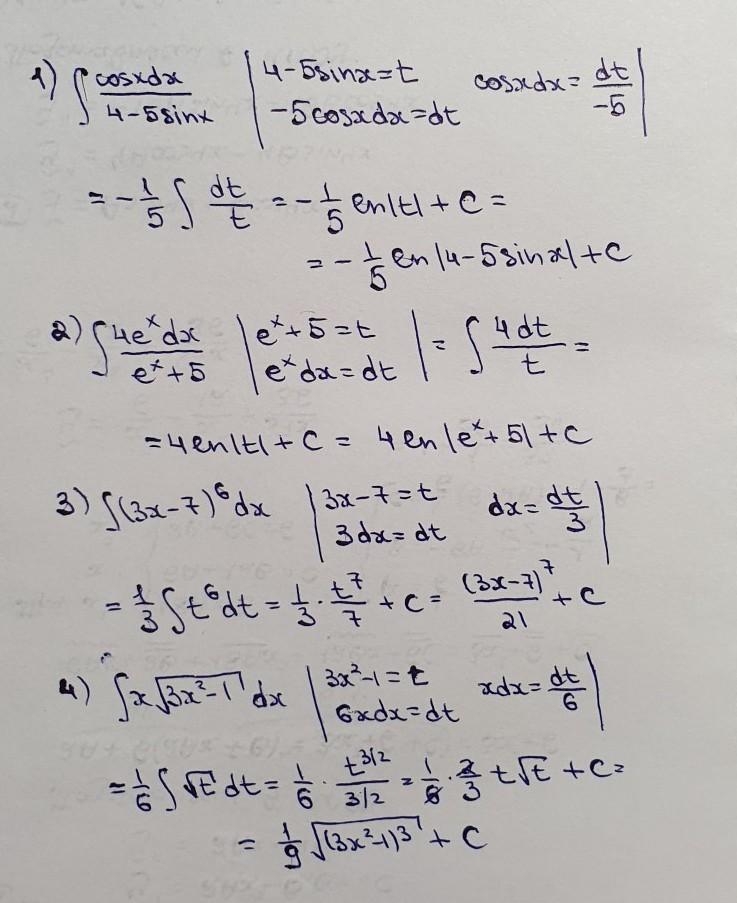 1) ∫ cosxdx / (4-5sinx) | 4-5sinx=t   cosxdx = dt/-5 |
| -5cosxdx=dt |
= -1/5 ∫ dt/t = -1/5 ln|t| + C =
= -1/5 ln|4-5sinx| + C
2) ∫ 4eˣdx / (eˣ+5) | eˣ+5=t | = ∫ 4dt/t =
| eˣdx=dt |
= 4ln|t| + C = 4ln|eˣ+5| + C
3) ∫(3x-7)⁶dx | 3x-7=t   dx = dt/3 |
| 3dx=dt |
= 1/3 ∫t⁶dt = 1/3 · t⁷/7 + C = (3x-7)⁷/21 + C
4) ∫x√(3x²-1) dx | 3x²-1=t   xdx = dt/6 |
| 6xdx=dt |
= 1/6 ∫√t dt = 1/6 · t^(3/2) / (3/2) = 1/6 · 2/3 t√t + C =
= 1/9 √((3x²-1)³) + C